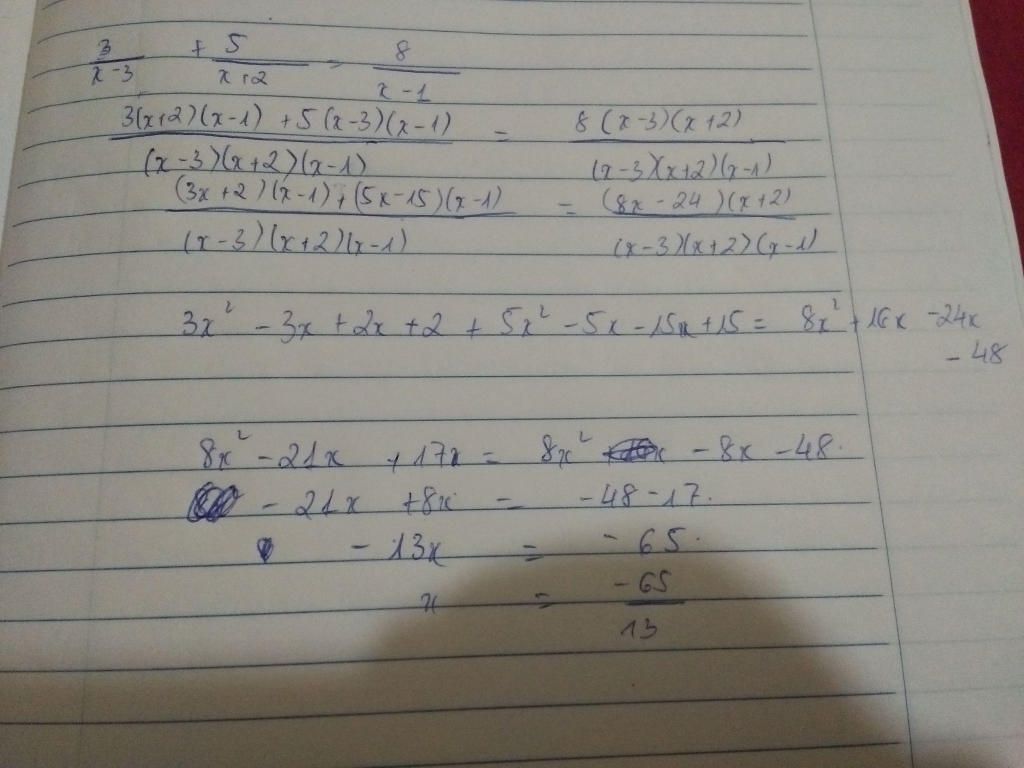 3/(x-3) + 5/(x+2) = 8/(x-1)
(3(x+2)(x-1) + 5(x-3)(x-1))/((x-3)(x+2)(x-1)) = (8(x-3)(x+2))/((x-3)(x+2)(x-1))
((3x+2)(x-1) + (5x-15)(x-1))/((x-3)(x+2)(x-1)) = ((8x-24)(x+2))/((x-3)(x+2)(x-1))
3x² - 3x + 2x + 2 + 5x² - 5x - 15x + 15 = 8x² + 16x - 24x
- 48
8x² - 21x + 17x = 8x² - 8x - 48.
- 21x + 8x = - 48 - 17.
- 13x = - 65.
x = -65/13